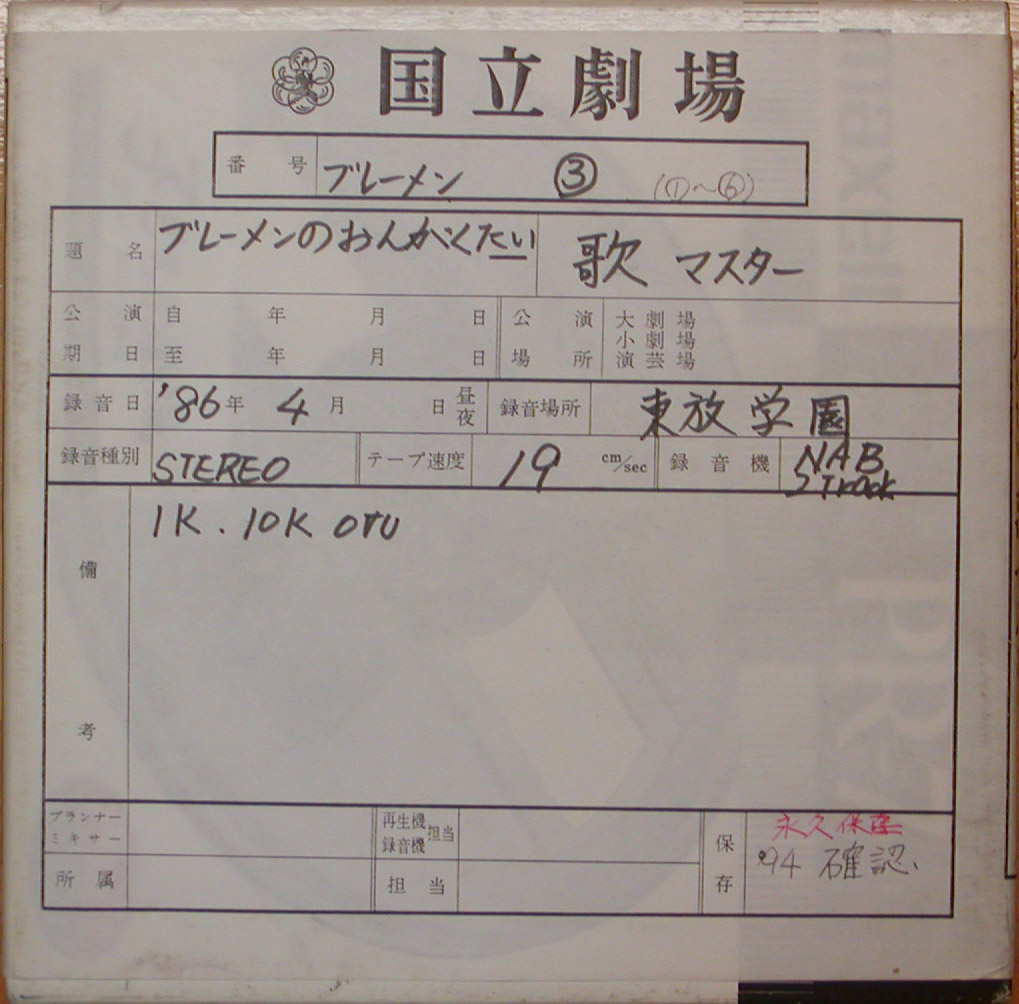 国立劇場
番号 ブレーメン ③ (①〜⑥)
題名 ブレーメンのおんがくたい 歌 マスター
公演期日 自 年 月 日 公演場所 大劇場
小劇場
至 年 月 日 演芸場
録音日 '86年 4月 日 昼夜 録音場所 東放学園
録音種別 STEREO テープ速度 19 cm/sec 録音機 NAB
2Track
備考 1K . 10K 0VU
プランナー 再生機 担当
ミキサー 録音機
保存 永久保存
所属 担当 '94 確認